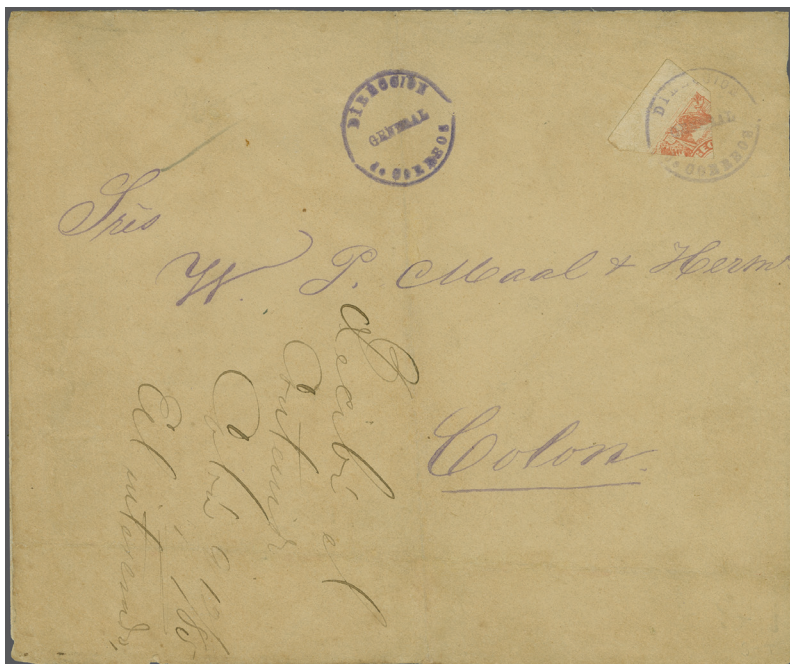 DIRECCIÓN
GENERAL
de CORREOS
DIRECCION
GENERAL
de CORREOS
Srēs
W. P. Maal & Herm
Colon.
Recibi el
Colon 9
El interesado